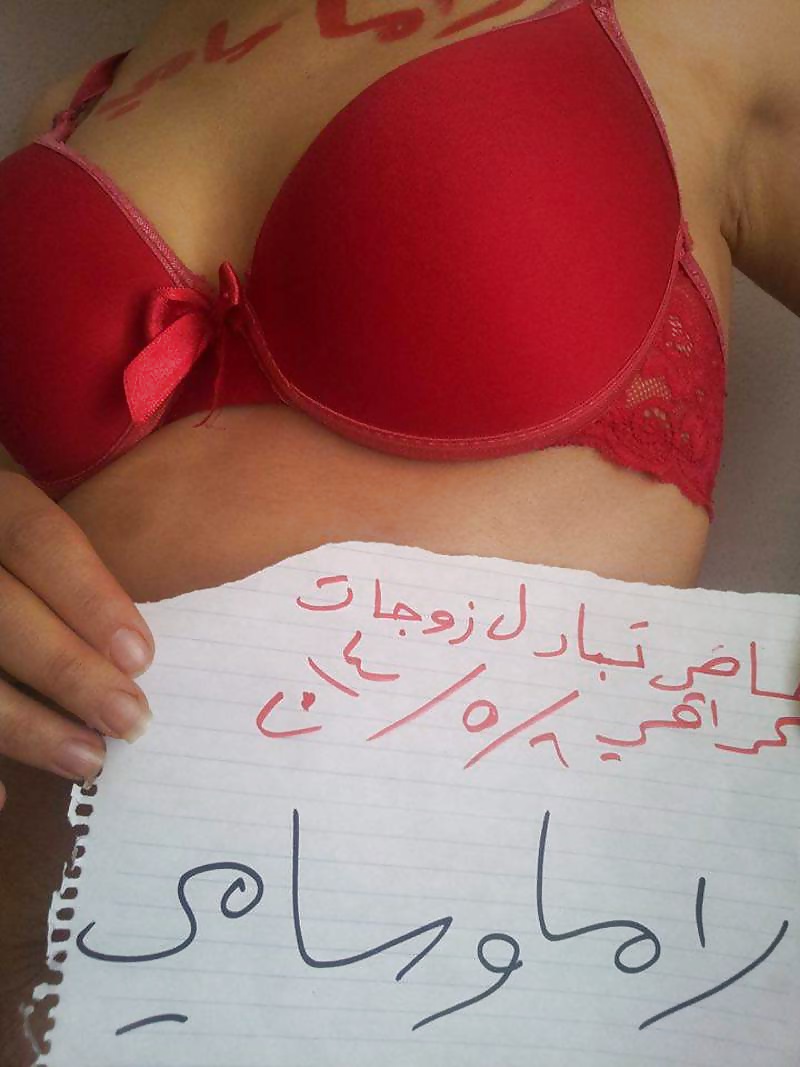 راما سامي
خاص تبادل زوجات
عراقي ٦/٥/١٤ ٢٠
راما وسامي